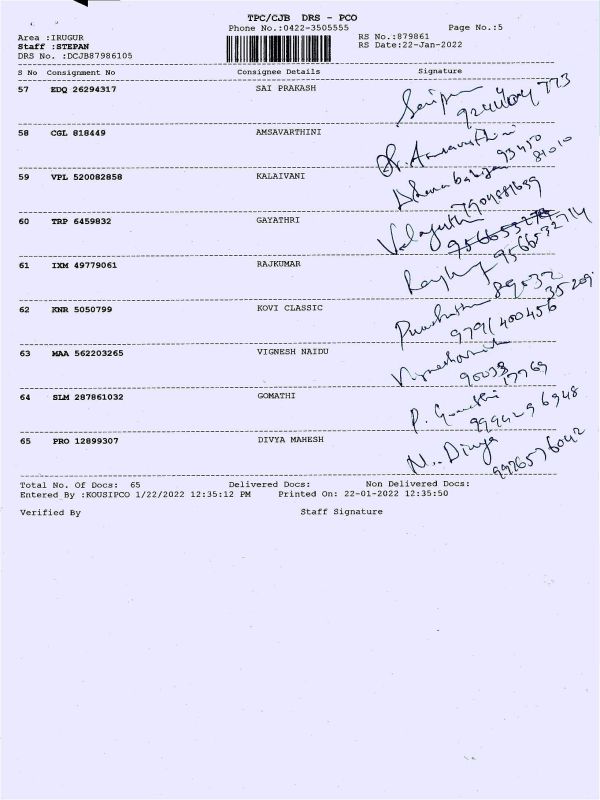 TPC/CJB DRS - PCO
Phone No.:0422-3505555 Page No.:5
Area :IRUGUR RS No.:879861
Staff :STEPAN RS Date:22-Jan-2022
DRS No. :DCJB87986105
S No Consignment No Consignee Details Signature
57 EDQ 26294317 SAI PRAKASH
58 CGL 818449 AMSAVARTHINI
93450
81010
59 VPL 520082858 KALAIVANI
7904881639
60 TRP 6459832 GAYATHRI
9566532714
61 IXM 49779061 RAJKUMAR
89032
35209
62 KNR 5050799 KOVI CLASSIC
9791400456
63 MAA 562203265 VIGNESH NAIDU
64 SLM 287861032 GOMATHI
P. Gomathi
9994296948
65 PRO 12899307 DIVYA MAHESH
N. Divya
Total No. Of Docs: 65 Delivered Docs: Non Delivered Docs:
Entered By :KOUSIPCO 1/22/2022 12:35:12 PM Printed On: 22-01-2022 12:35:50
Verified By Staff Signature